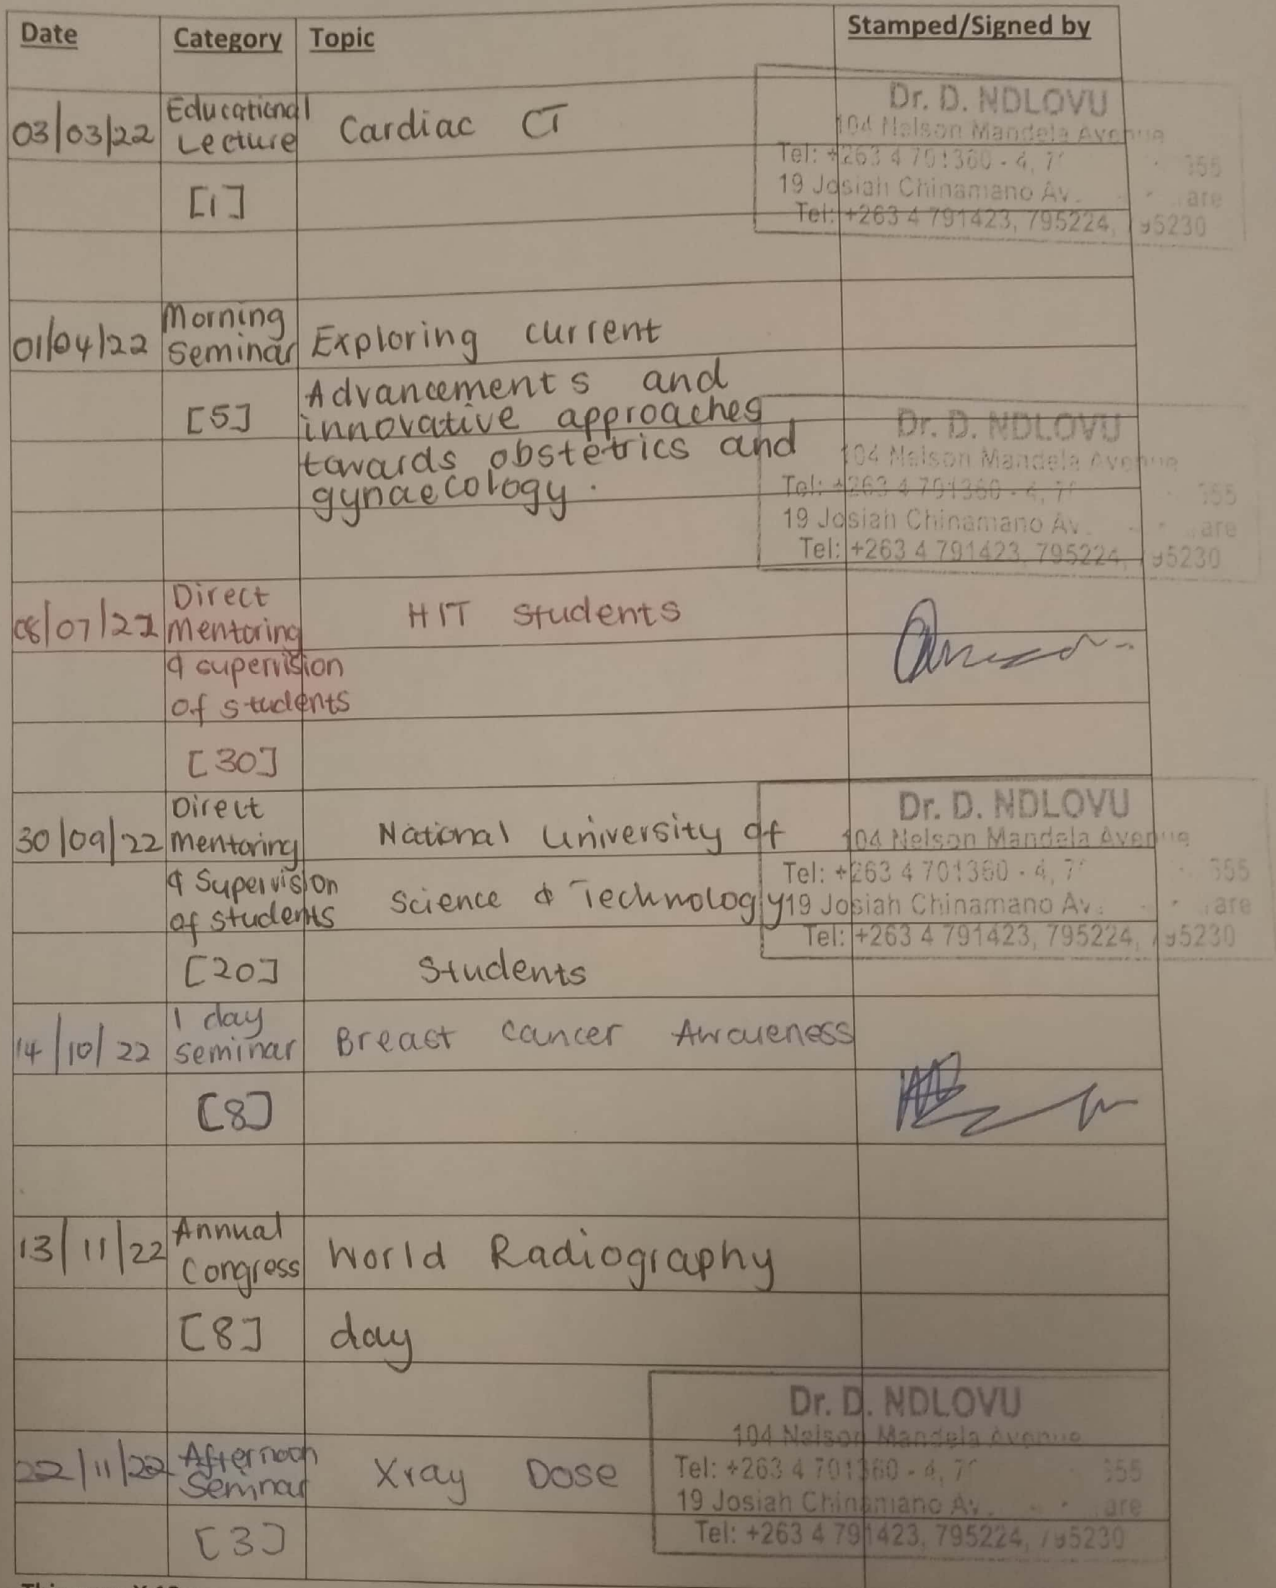 Date Category Topic Stamped/Signed by
Dr. D. NDLOVU
104 Nelson Mandela Avenue
Tel: +263 4 701360 - 4, 7
19 Josiah Chinamano Av.
Tel: +263 4 791423, 795224, 795230
03/03/22 Educational Lecture Cardiac CT
[1]
01/04/22 Morning Seminar Exploring current
Advancements and
[5] innovative approaches
towards obstetrics and
gynaecology.
Dr. D. NDLOVU
104 Nelson Mandela Avenue
Tel: +263 4 701360 - 4, 7
19 Josiah Chinamano Av.
Tel: +263 4 791423, 795224, 795230
Direct
08/07/22 Mentoring HIT students
& supervision
of students
[30]
Direct
30/09/22 Mentoring National University of
& Supervision
of students Science & Technology
[20] Students
Dr. D. NDLOVU
104 Nelson Mandela Avenue
Tel: +263 4 701360 - 4, 7
19 Josiah Chinamano Av.
Tel: +263 4 791423, 795224, 795230
14/10/22 1 day seminar Breast cancer Awareness
[8]
13/11/22 Annual Congress World Radiography
[8] day
22/11/22 Afternoon Seminar Xray Dose
[3]
Dr. D. NDLOVU
104 Nelson Mandela Avenue
Tel: +263 4 701360 - 4, 7
19 Josiah Chinamano Av.
Tel: +263 4 791423, 795224, 795230